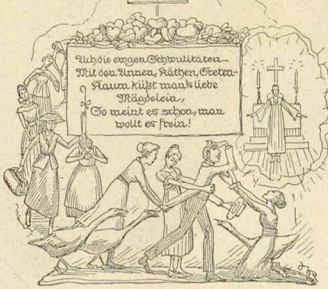 Ach die ewgen Schwulitäten
Mit den Annen, Käthen, Greten
Kaum küßt man's liebe
Mägdelein,
So meint es schon, man
wollt es frein!